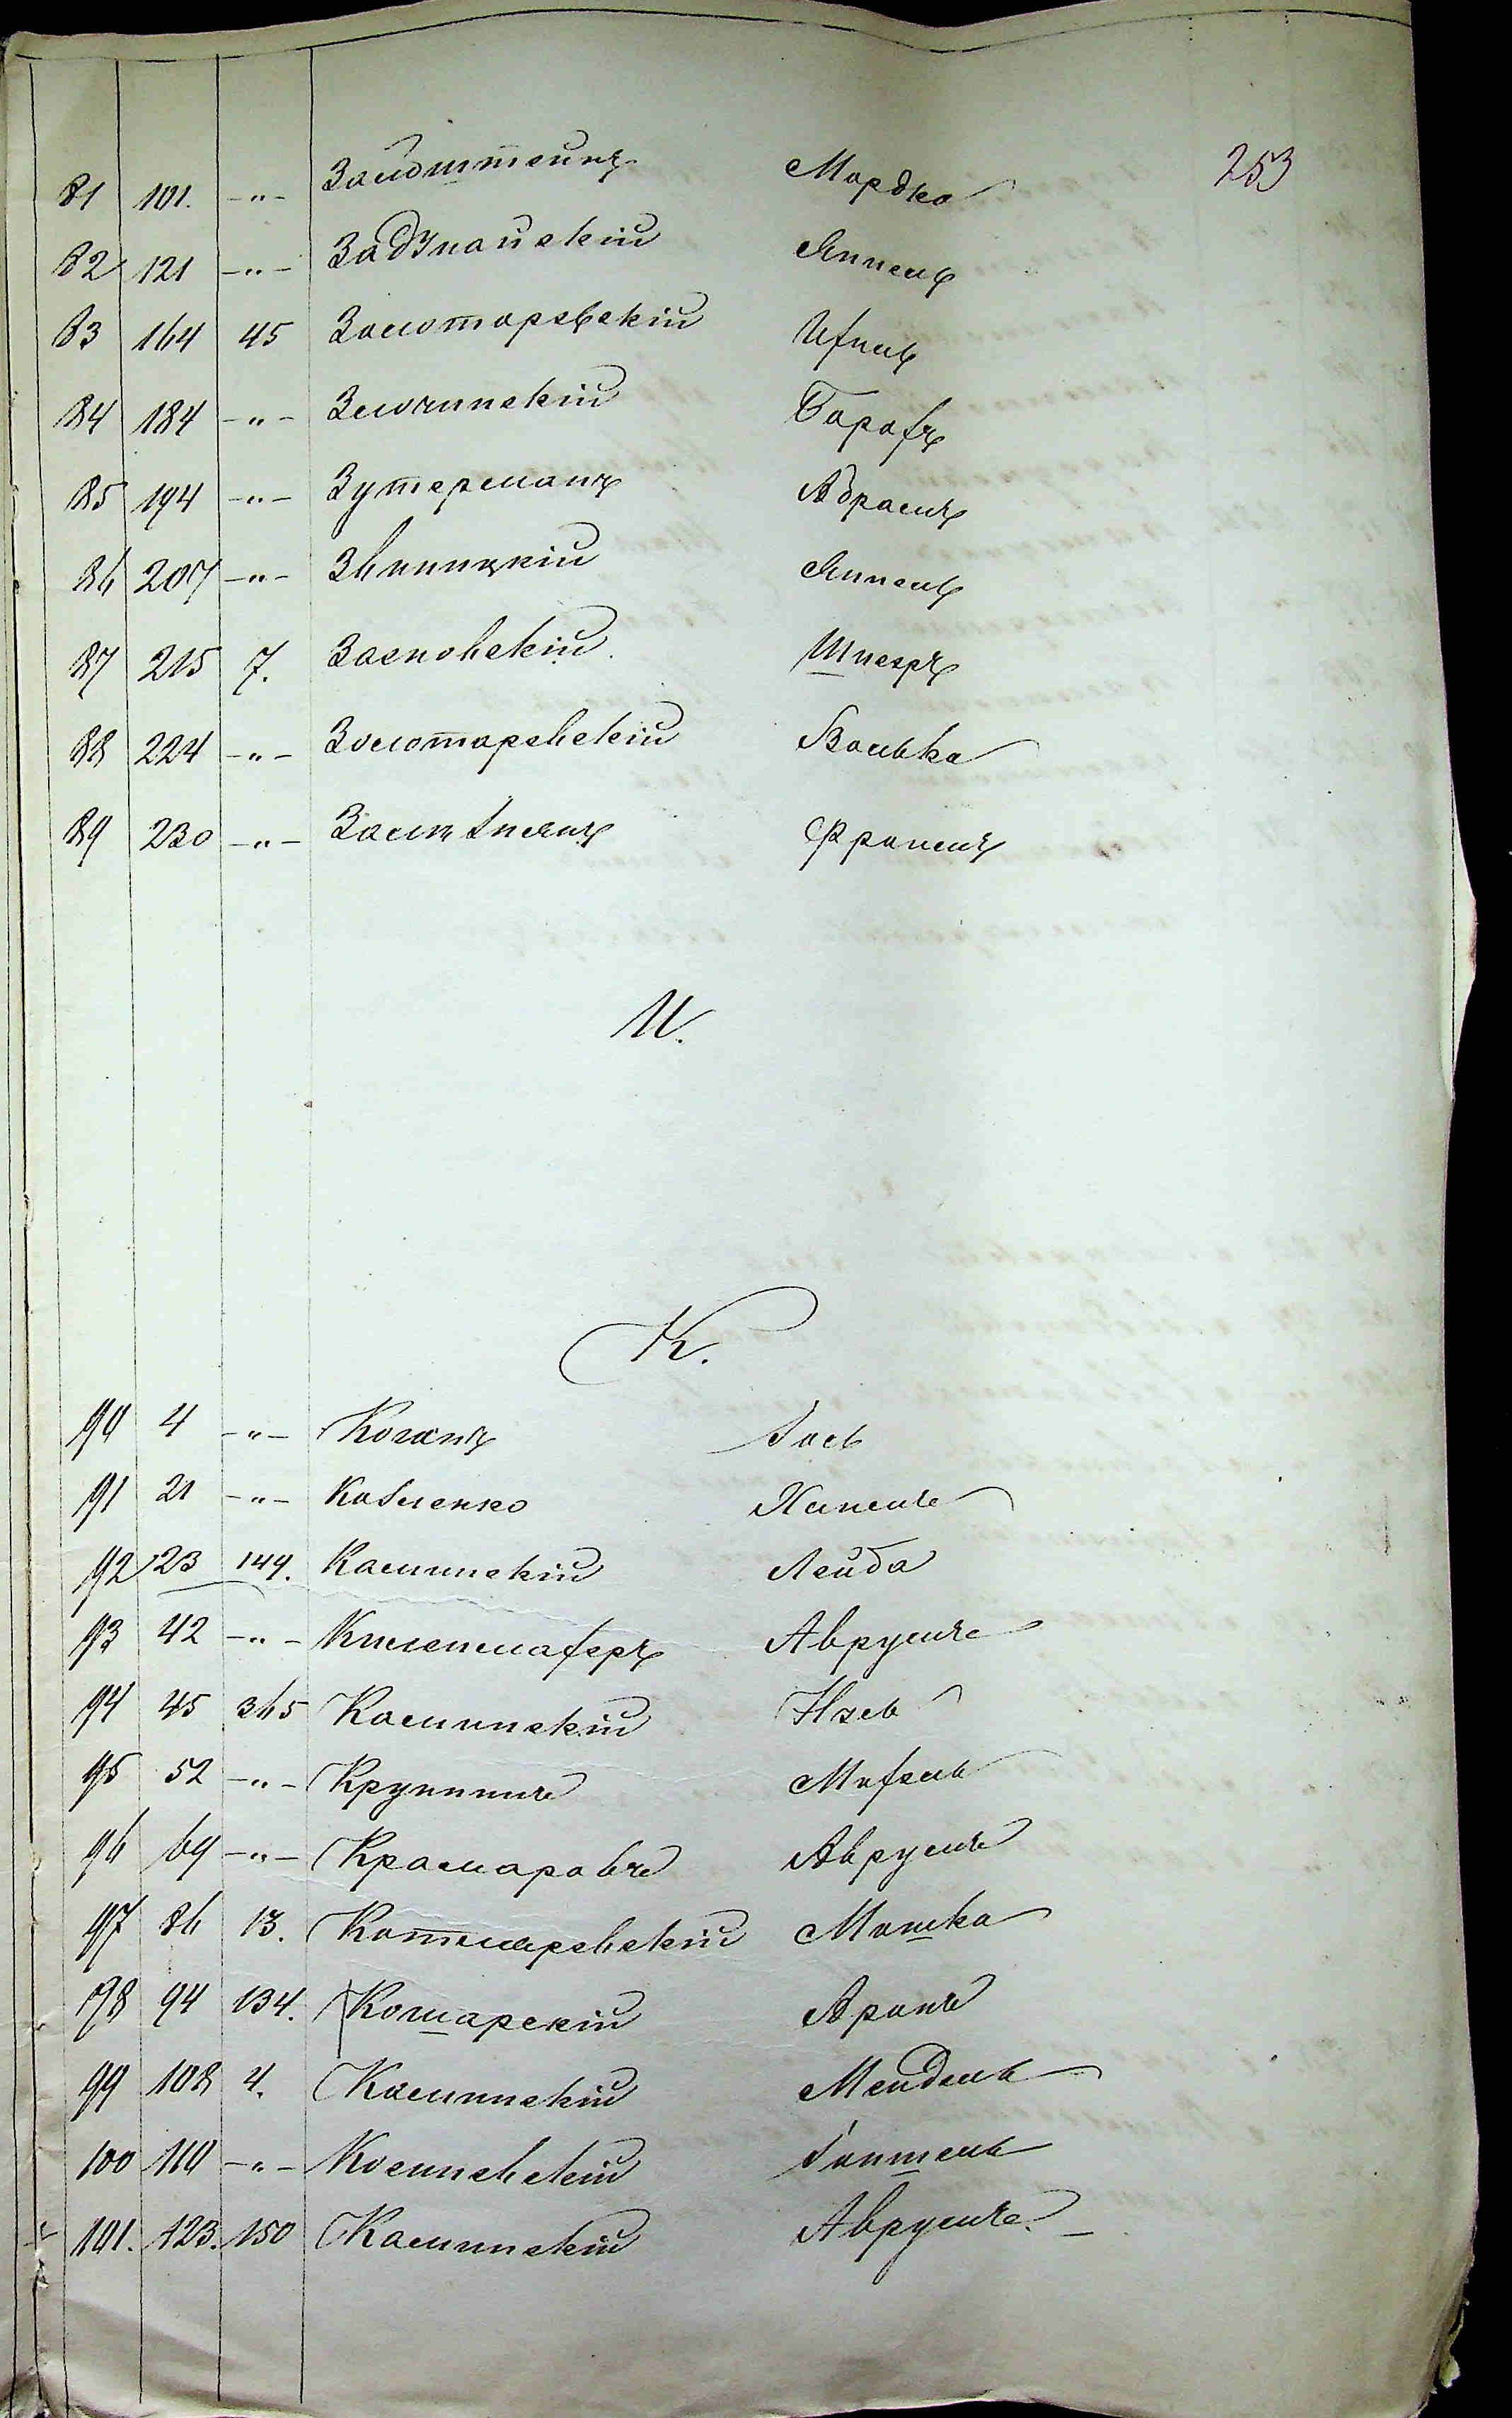 253
81 101. -"- Зольдштейнъ Мордко
82 121 -"- Задунайскій Янкель
83 164 45 Золотаревскій Ицель
84 184 -"- Злочинскій Борохъ
85 194 -"- Зутерманъ Абрамъ
86 207 -"- Звиницкій Янкель
87 215 7. Засновскій Шнееръ
88 224 -"- Золотаревскій Волька
89 230 -"- Фроимъ
И.
К.
90 4 -"- Коганъ Іось
91 21 -"- Козленко Хаимъ
92 23 149. Каминскій Лейба
93 42 -"- Аврумъ
94 45 365 Каминскій
95 52 -"- Крупникъ
96 69 -"- Крамаровъ Аврумъ
97 86 13. Котляревскій Мошко
98 94 134. Кошарскій Аронъ
99 108 4. Каминскій Мендель
100 110 -"-
101. 123. 150 Каминскій Аврумъ. -